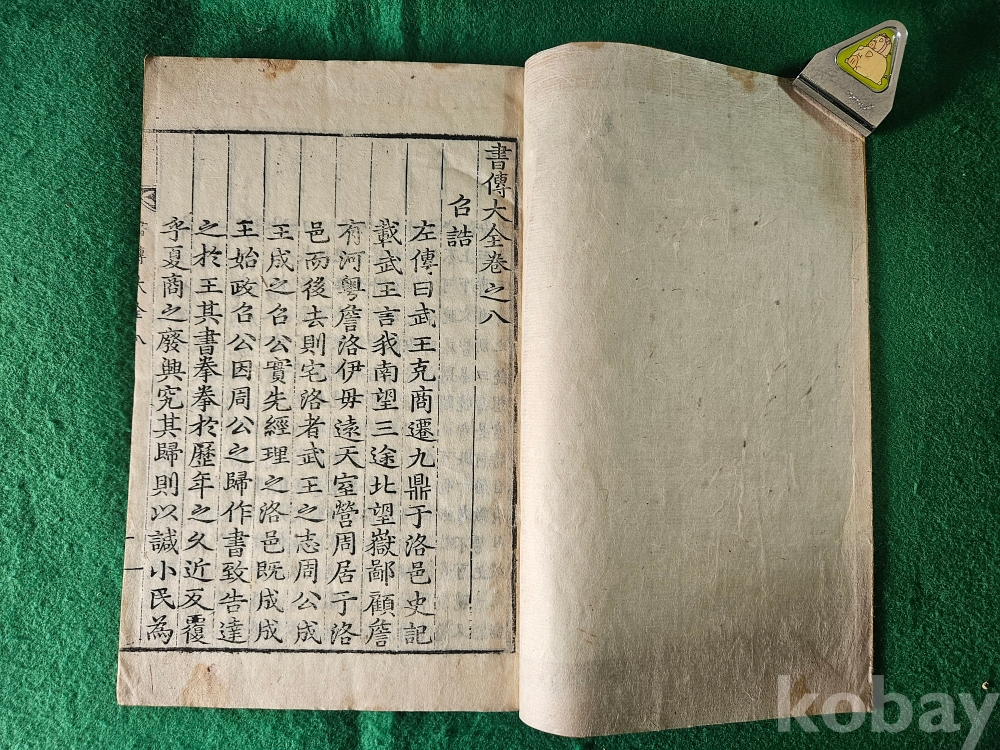 書傳大全卷之八
召誥
左傳曰武王克商遷九鼎于洛邑史記
載武王言我南望三途北望嶽鄙顧詹
有河粤詹洛伊毋遠天室營周居于洛
邑而後去則宅洛者武王之志周公成
王成之召公實先經理之洛邑既成成
王始政召公因周公之歸作書致告達
之於王其書拳拳於歷年之久近反覆
乎夏商之廢興究其歸則以諴小民為
kobay